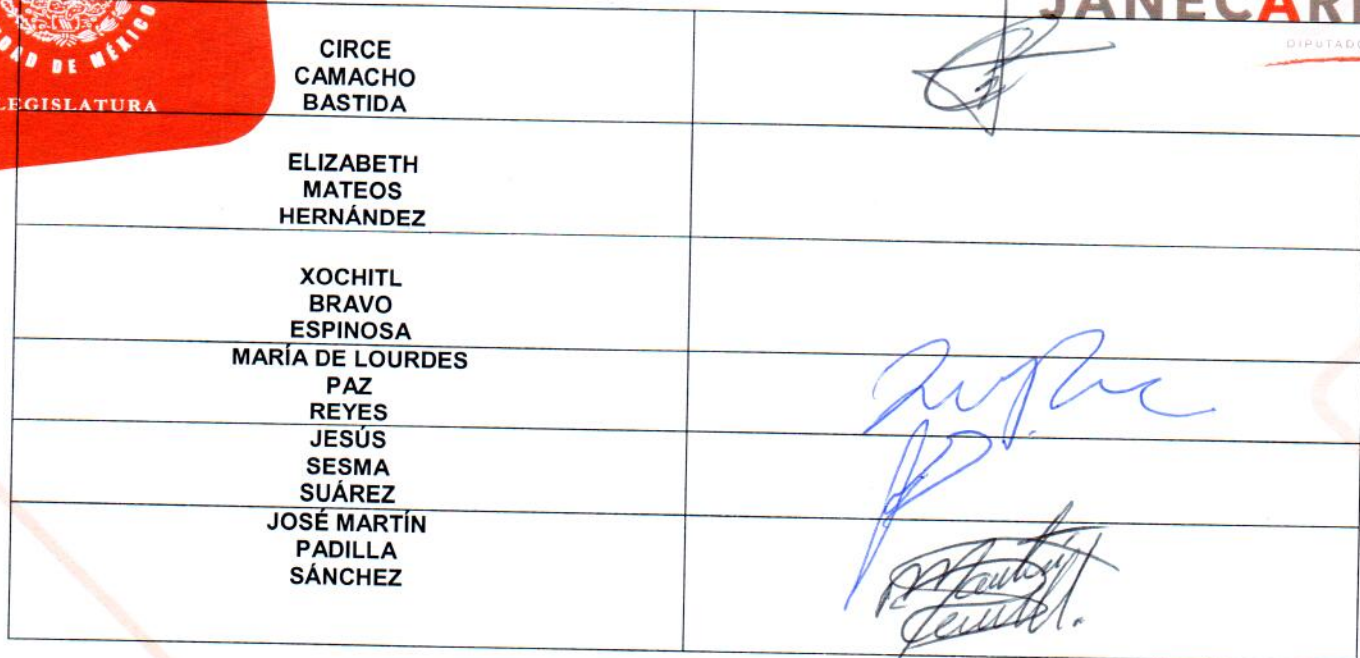 DAD DE MÉXICO
LEGISLATURA
JANECAR
DIPUTADO
CIRCE
CAMACHO
BASTIDA
ELIZABETH
MATEOS
HERNÁNDEZ
XOCHITL
BRAVO
ESPINOSA
MARÍA DE LOURDES
PAZ
REYES
JESÚS
SESMA
SUÁREZ
JOSÉ MARTÍN
PADILLA
SÁNCHEZ